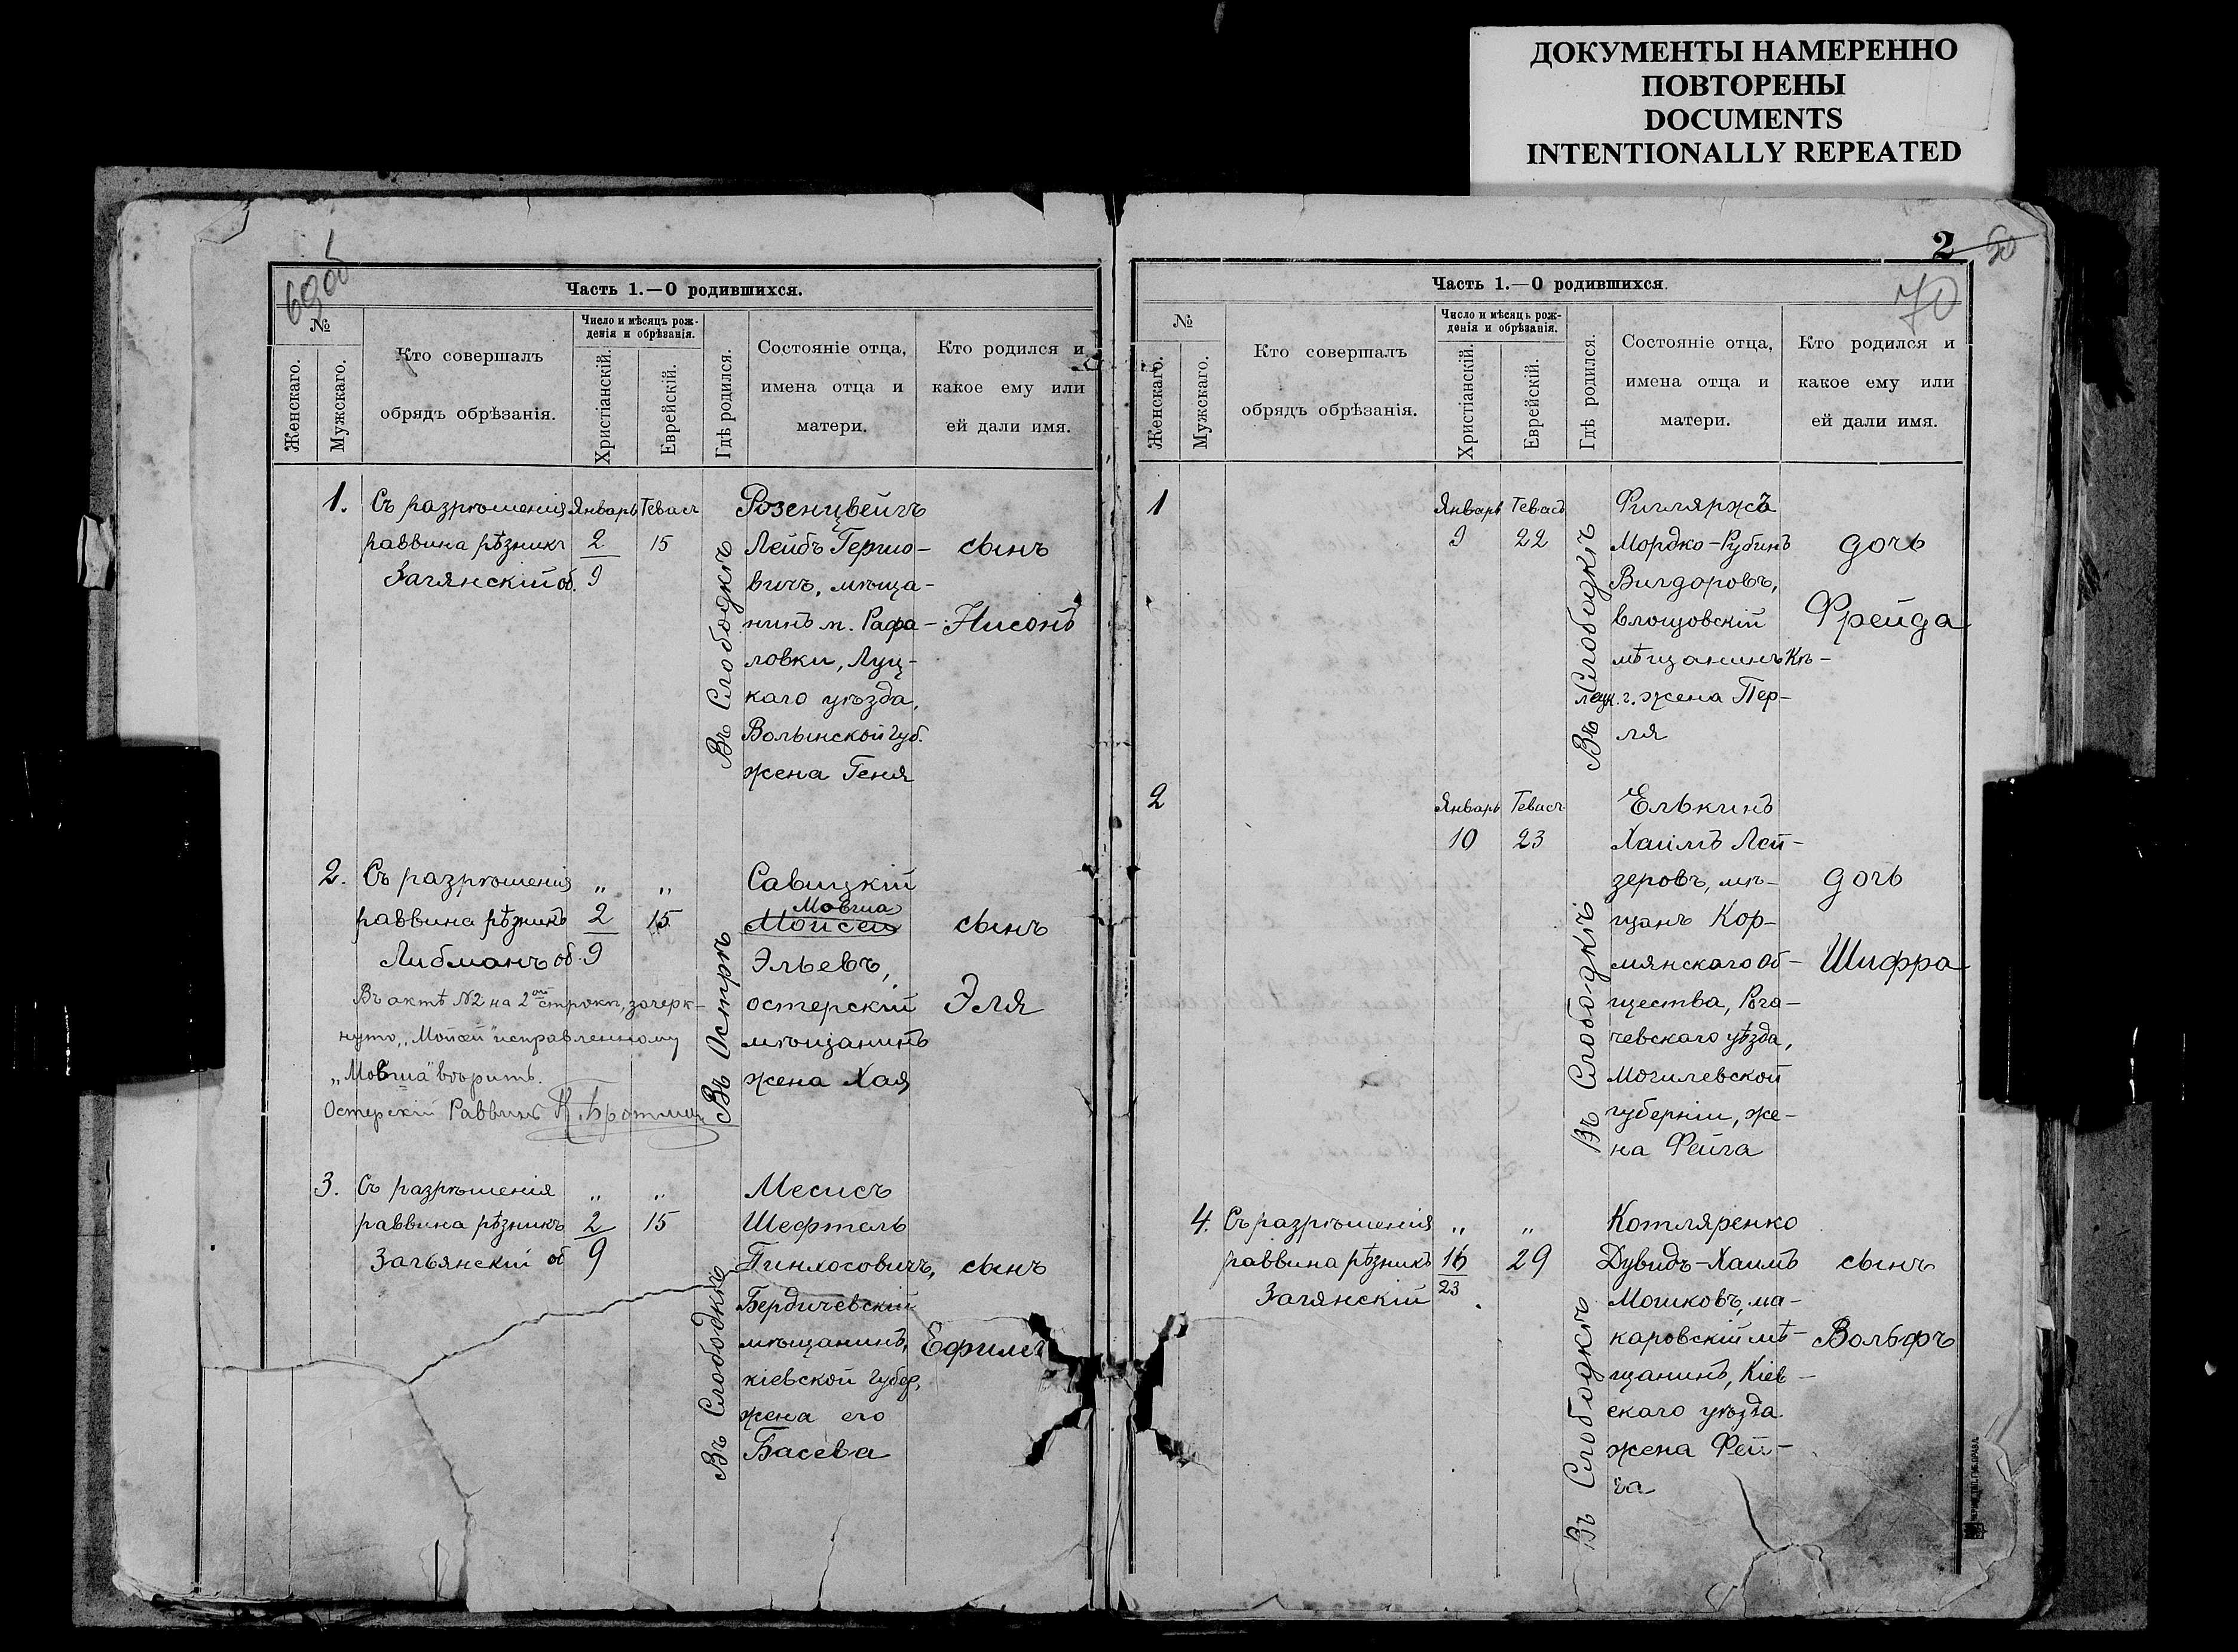 ДОКУМЕНТЫ НАМЕРЕННО
ПОВТОРЕНЫ
DOCUMENTS
INTENTIONALLY REPEATED
69об
Часть 1.—О родившихся.
№
Женскаго.
Мужскаго.
Кто совершалъ
обрядъ обрѣзанія.
Число и мѣсяцъ рож-
денія и обрѣзанія.
Христіанскій.
Еврейскій.
Гдѣ родился.
Состояніе отца,
имена отца и
матери.
Кто родился и
какое ему или
ей дали имя.
1.
Съ разрѣшенія
раввина рѣзникъ
Загянскій об.
Январь
2
9
Теваст
15
Въ Слободкѣ
Розенцвейгъ
Лейбъ Гершо-
вичъ, мѣща-
нинъ м. Рафа-
ловки, Луц-
каго уѣзда,
Волынской губ.
жена Геня
сынъ
Нисонъ
2.
Съ разрѣшенія
раввина рѣзникъ
Либманъ об.
„
2
9
„
15
Въ Острѣ
Савицкій
Мовша
Мойсей
Эльевъ,
остерскій
мѣщанинъ
жена Хая
сынъ
Эля
Въ актѣ №2 на 2ой строкѣ, зачерк-
нуто „Мойсей" исправленному
„Мовша" вѣрить.
Остерскій Раввинъ
3.
Съ разрѣшенія
раввина рѣзникъ
Загьянскій об
„
2
9
„
15
Въ Слободкѣ
Месисъ
Шефтель
Пинхосовичъ,
Бердичевскій
мѣщанинъ,
кіевской губер,
жена его
Басева
сынъ
Ефимъ
2
50
70
Часть 1.—О родившихся.
№
Женскаго.
Мужскаго.
Кто совершалъ
обрядъ обрѣзанія.
Число и мѣсяцъ рож-
денія и обрѣзанія.
Христіанскій.
Еврейскій.
Гдѣ родился.
Состояніе отца,
имена отца и
матери.
Кто родился и
какое ему или
ей дали имя.
1
Январь
9
Теваст
22
Въ Слободкѣ
Фигляржъ
Мордко-Рубинъ
Вигдоровъ,
влощовскій
мѣщанинъ Кѣ-
лецк. г. жена Пер-
ля
дочь
Фрейда
2
Январь
10
Теваст
23
Въ Слободкѣ
Елькинъ
Хаимъ Лей-
зеровъ, мѣ-
щанъ Кор-
мянскаго об-
щества, Рога-
чевскаго уѣзда,
Могилевской
губерніи, же-
на Фейга
дочь
Шифра
4.
Съ разрѣшенія
раввина рѣзникъ
Загянскій
„
16
23
„
29
Въ Слободкѣ
Котляренко
Дувидъ-Хаимъ
Мошковъ, ма-
каровскій мѣ-
щанинъ, Кіев-
скаго уѣзда
жена Фей-
га
сынъ
Вольфъ